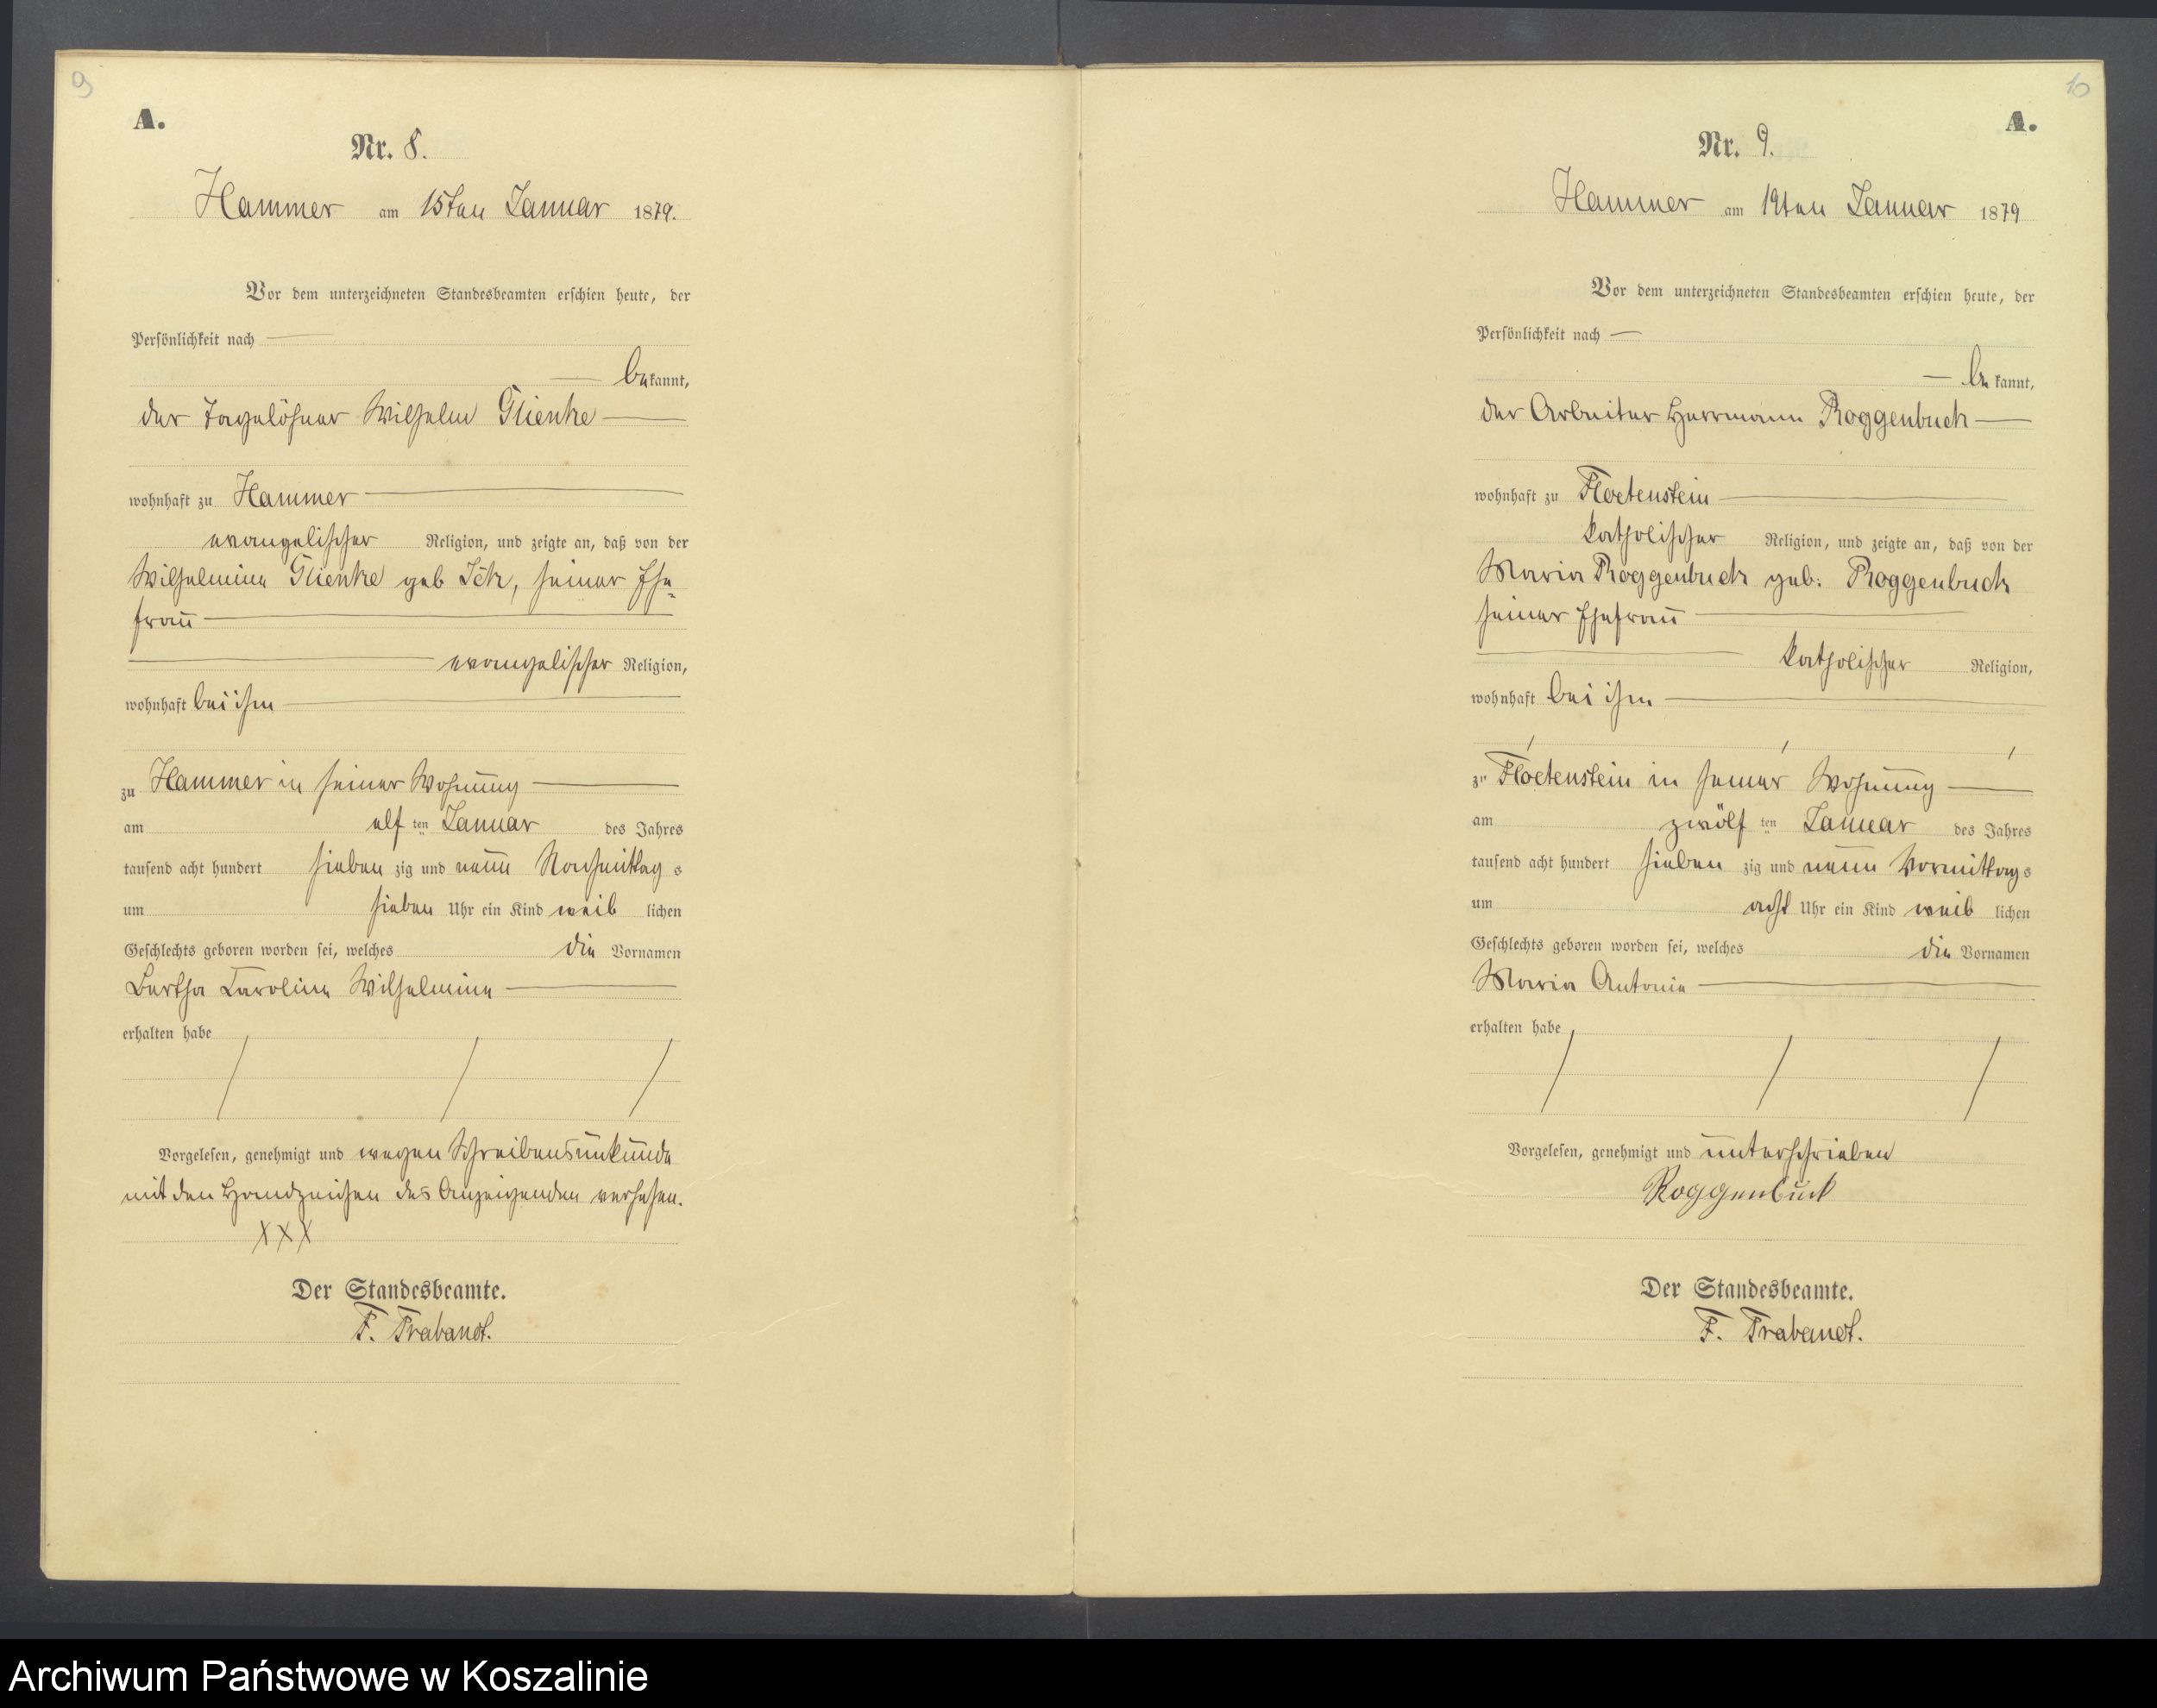 9
A.
Nr. 8.
Hammer am 15ten Januar 1879.
Vor dem unterzeichneten Standesbeamten erschien heute, der
Persönlichkeit nach
bekannt,
der Tagelöhner Wilhelm Glienke
wohnhaft zu Hammer
evangelischer Religion, und zeigte an, daß von der
Wilhelmine Glienke geb Ick, seiner Ehe-
frau
evangelischer Religion,
wohnhaft bei ihm
zu Hammer in seiner Wohnung
am elf ten Januar des Jahres
tausend acht hundert sieben zig und neun Nachmittag s
um sieben Uhr ein Kind weib lichen
Geschlechts geboren worden sei, welches die Vornamen
Bertha Caroline Wilhelmine
erhalten habe
Vorgelesen, genehmigt und wegen Schreibensunkunde
mit den Handzeichen des Anzeigenden versehen.
XXX
Der Standesbeamte.
F. Trabandt.
10
A.
Nr. 9.
Hammer am 19ten Januar 1879
Vor dem unterzeichneten Standesbeamten erschien heute, der
Persönlichkeit nach
be kannt,
der Arbeiter Herrmann Roggenbuck
wohnhaft zu Floetenstein
katholischer Religion, und zeigte an, daß von der
Maria Roggenbuck geb: Roggenbuck
seiner Ehefrau
katholischer Religion,
wohnhaft bei ihm
zu Floetenstein in seiner Wohnung
am zwölf ten Januar des Jahres
tausend acht hundert sieben zig und neun Vormittag s
um acht Uhr ein Kind weib lichen
Geschlechts geboren worden sei, welches die Vornamen
Maria Antonie
erhalten habe
Vorgelesen, genehmigt und unterschrieben
Roggenbuck
Der Standesbeamte.
F. Trabandt.
Archiwum Państwowe w Koszalinie